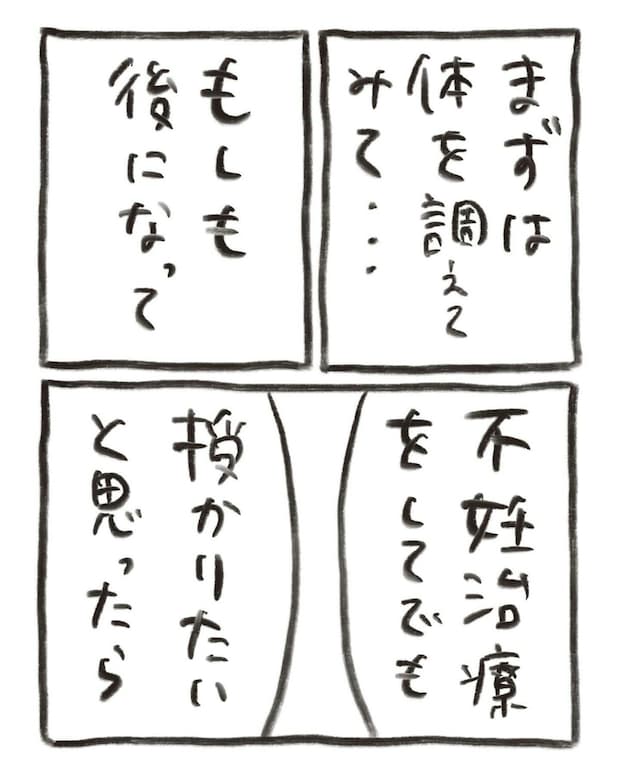 まずは
体を調えて
みて・・・
もしも
後になって
不妊治療
をしてでも
授かりたい
と思ったら